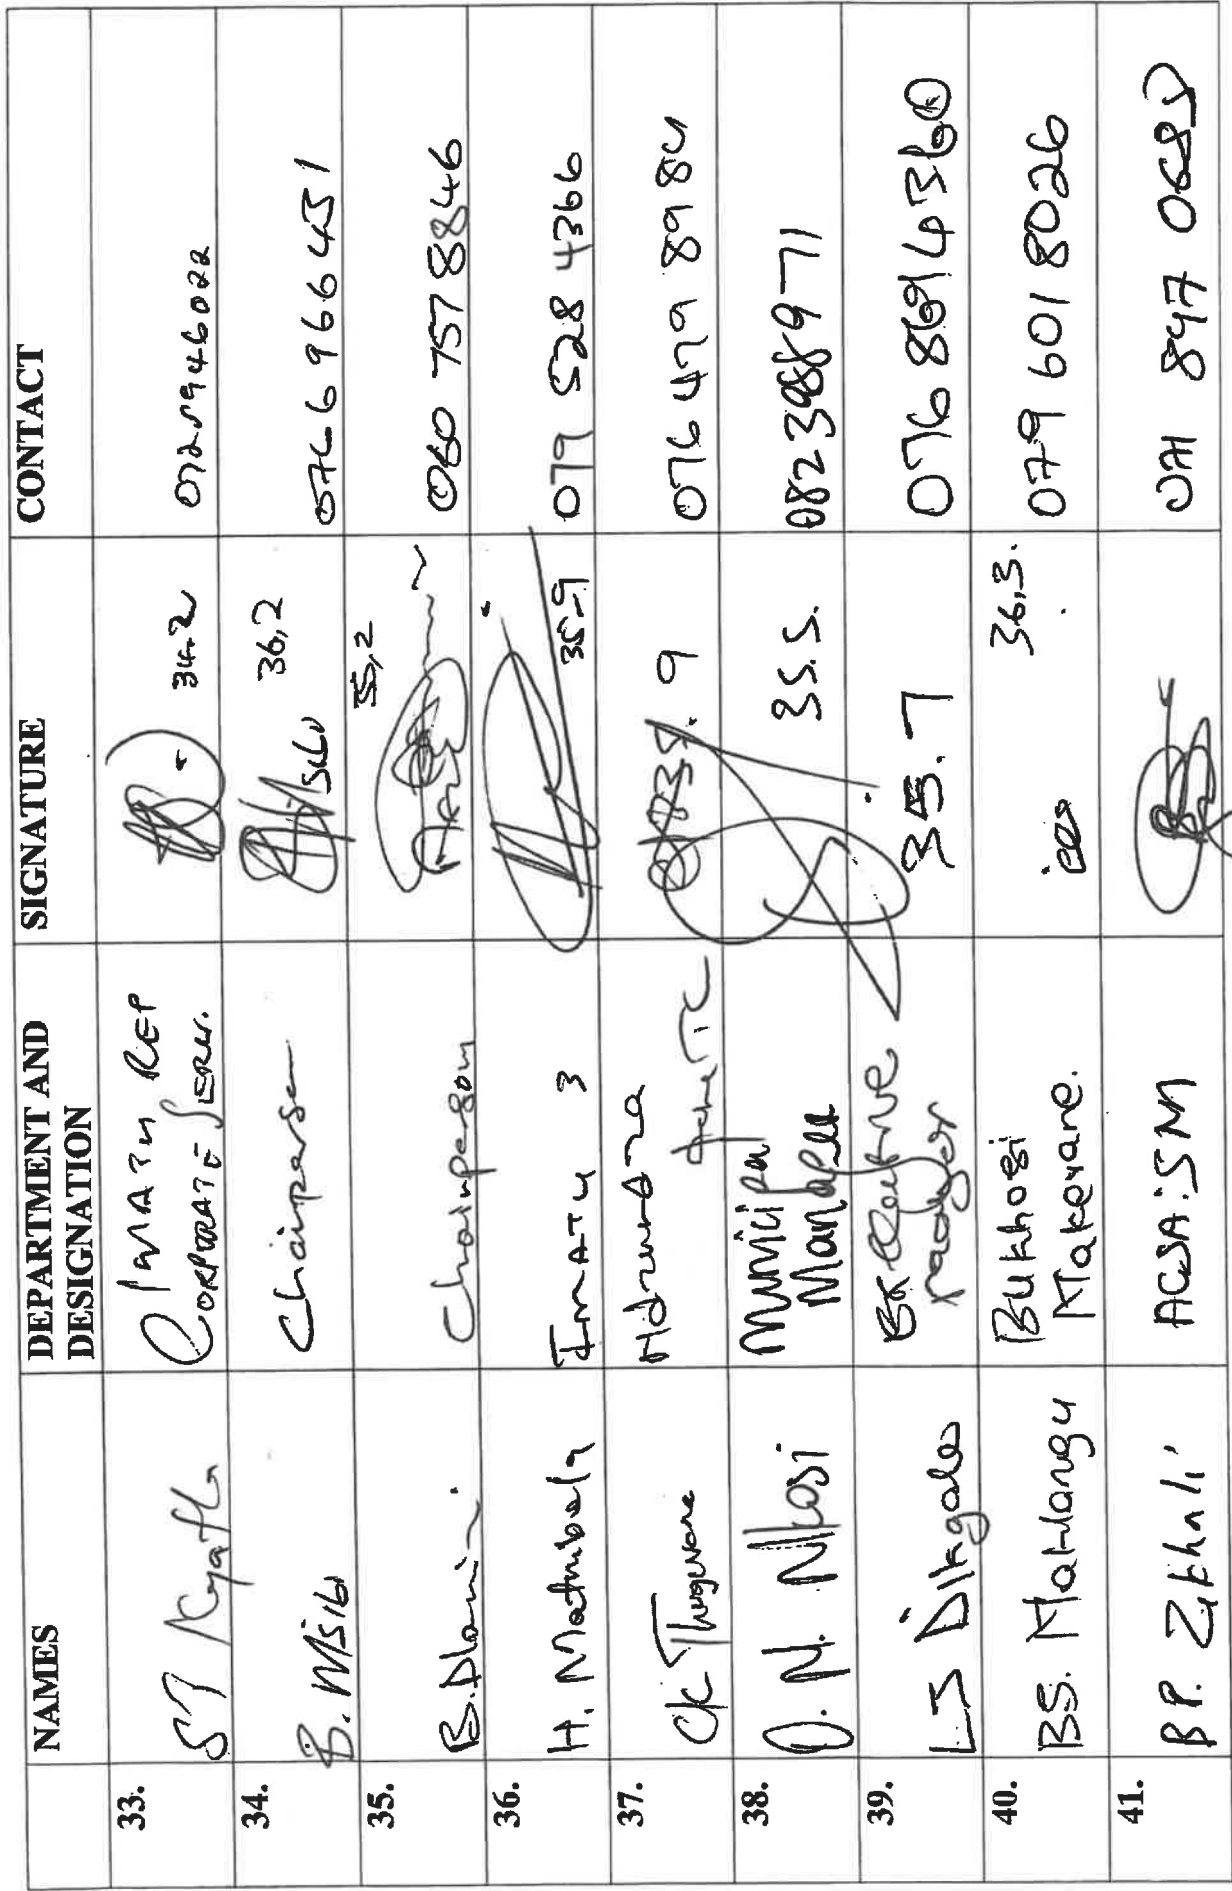 NAMES DEPARTMENT AND DESIGNATION SIGNATURE CONTACT
33. SJ CORPORATE SERV. 34.2 0725946022
34. B. Msibi Chairperson 36,2 0766966451
35. B. Dlamini Chairperson 35,2 060 757 8846
36. H. Mathebela Imatu 3 35.9 079 528 4366
37. CK Thugwane 35.9 076 479 8984
38. D. N. Nkosi Municipal Manager 35.5. 0823988971
39. LJ Dikgale Executive Manager 35.7 076 869 4360
40. BS. Mahlangu Bukhosi Makerane. 36,3. 079 601 8026
41. B.P. Zikhali ACSA:SM 071 847 0685